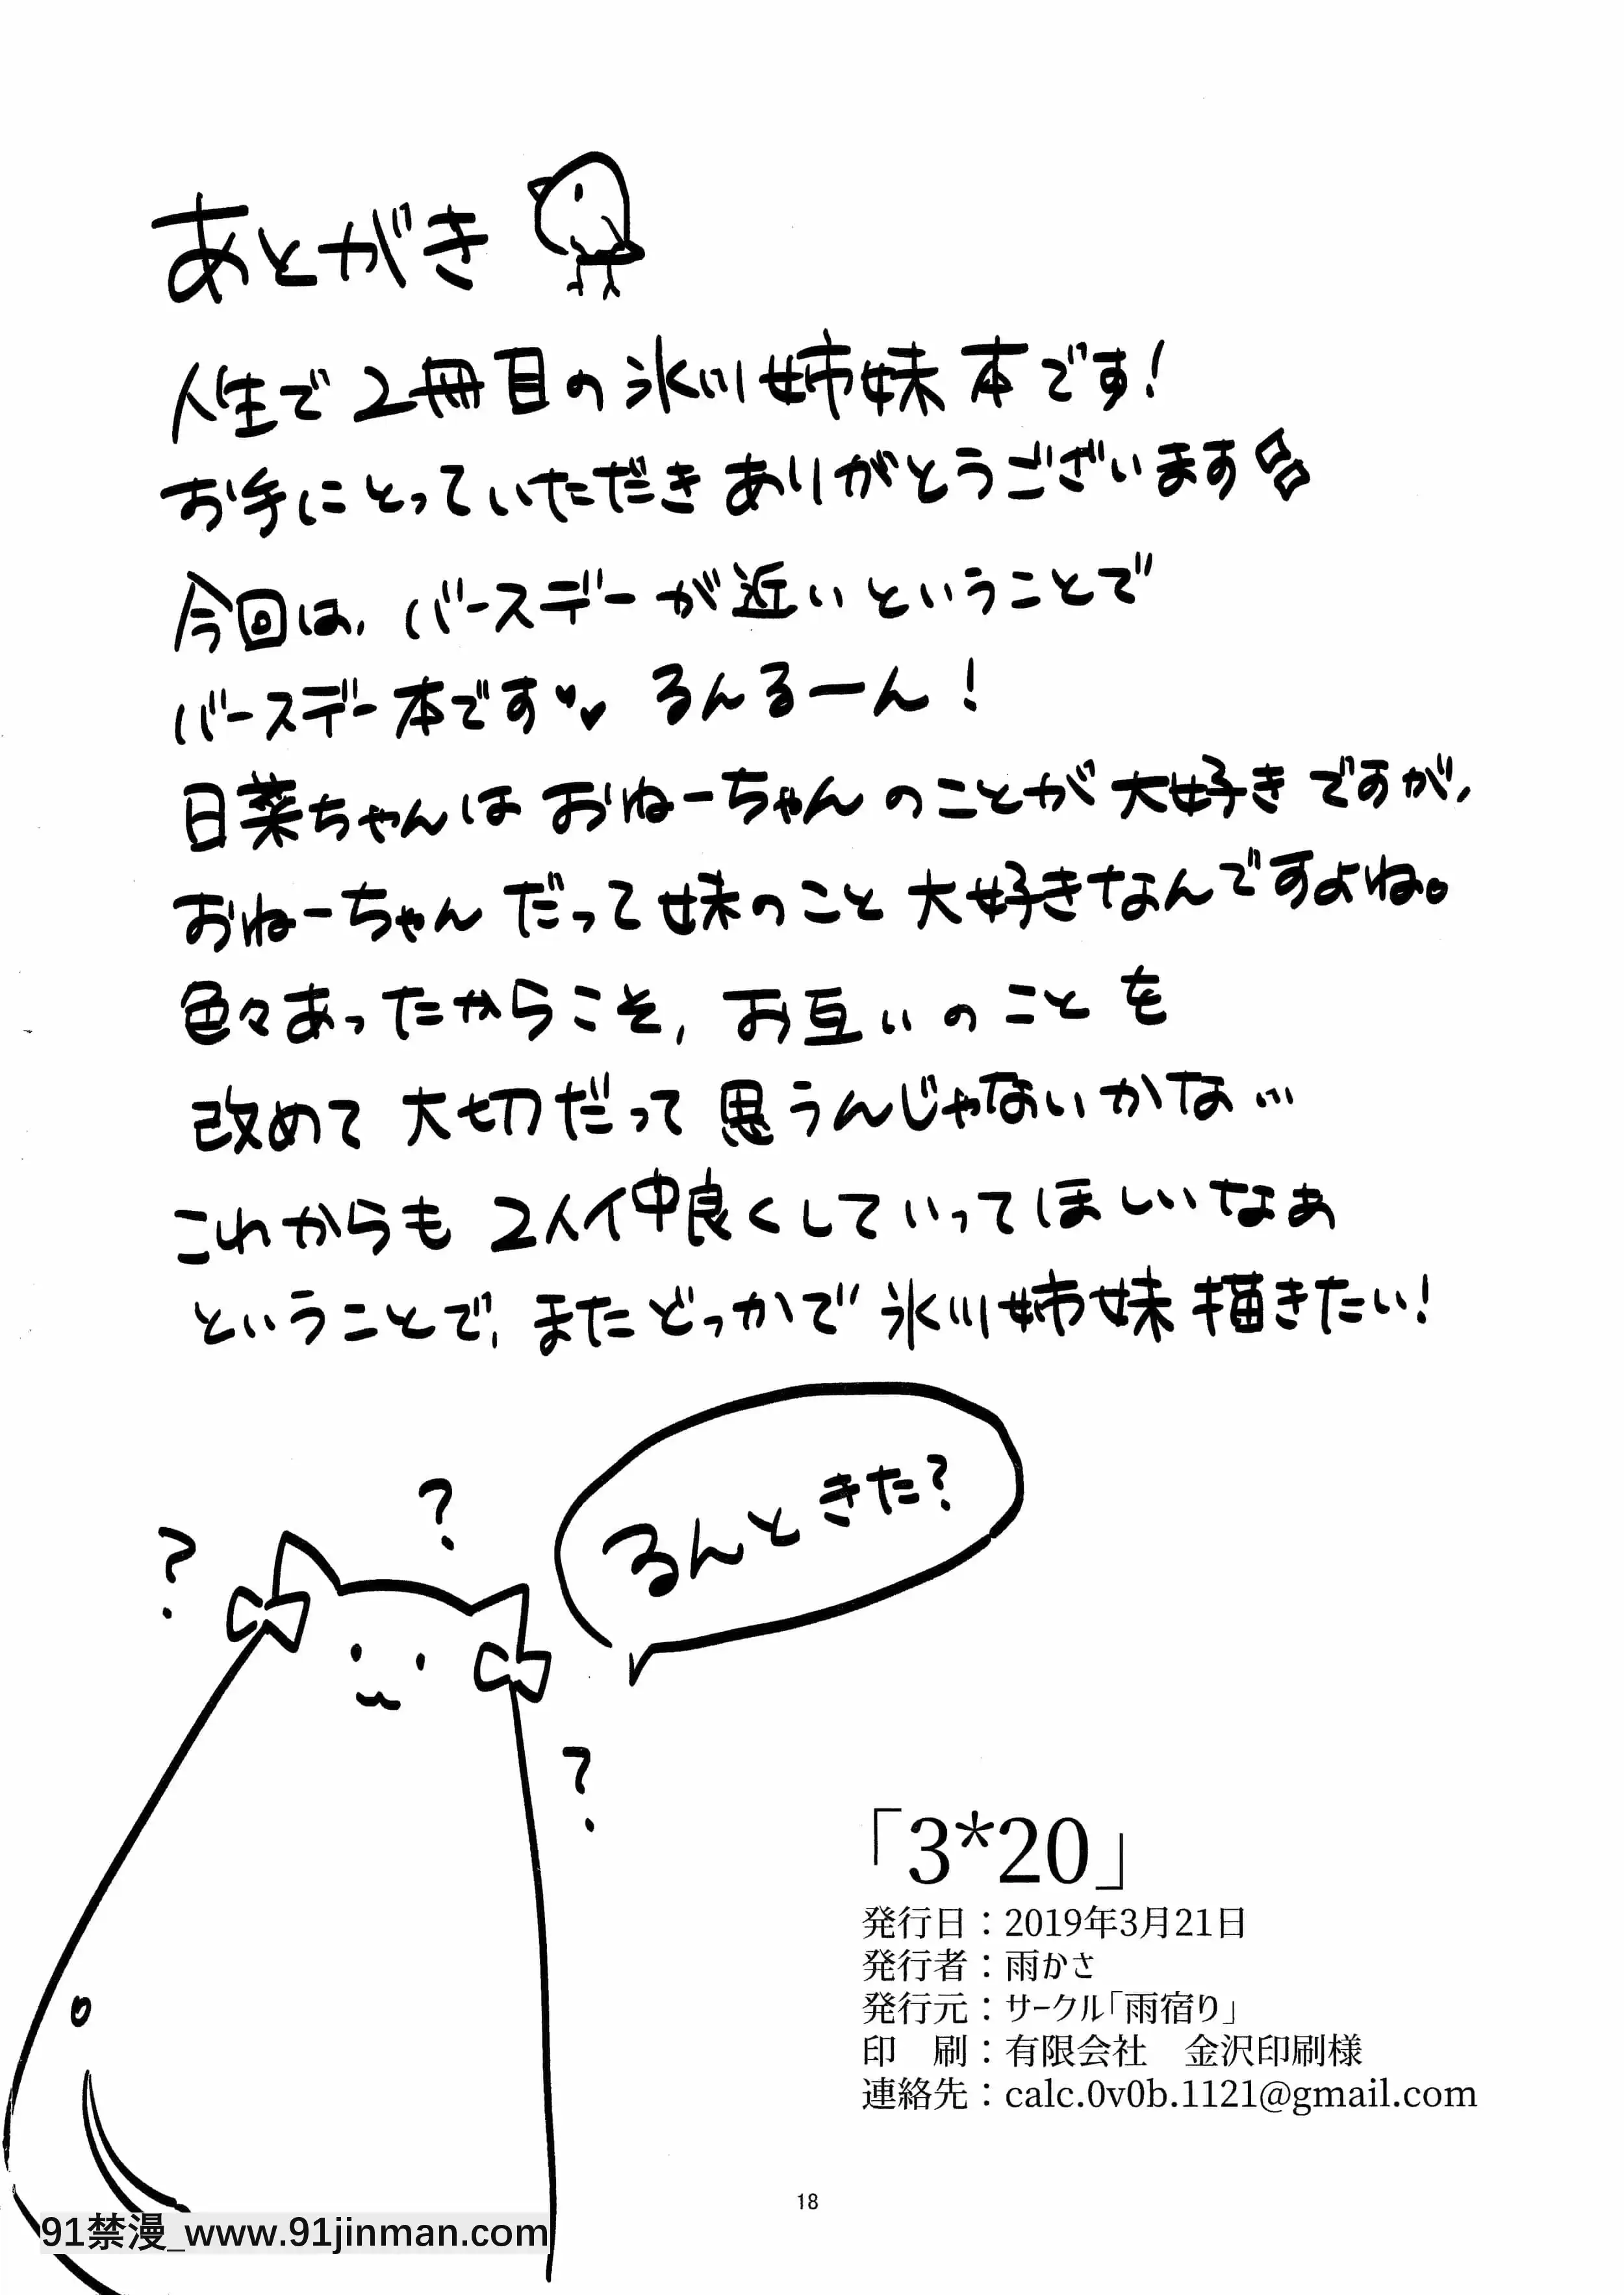 あとがき
人生で2冊目の氷川姉妹本です!
お手にとっていただきありがとうございます
今回は、バースデーが近いということで
バースデー本です♥♥ るんるーん!
日菜ちゃんはおねーちゃんのことが大好きですが、
おねーちゃんだって妹のこと大好きなんですよね。
色々あったからこそ、お互いのことを
改めて大切だって思うんじゃないかな…
これからも2人仲良くしていってほしいなぁ
ということで、またどっかで氷川姉妹描きたい!
るんときた?
?
?
?
「3*20」
発行日:2019年3月21日
発行者:雨かさ
発行元:サークル「雨宿り」
印 刷:有限会社 金沢印刷様
連絡先:calc.0v0b.1121@gmail.com
18
91禁漫_www.91jinman.com